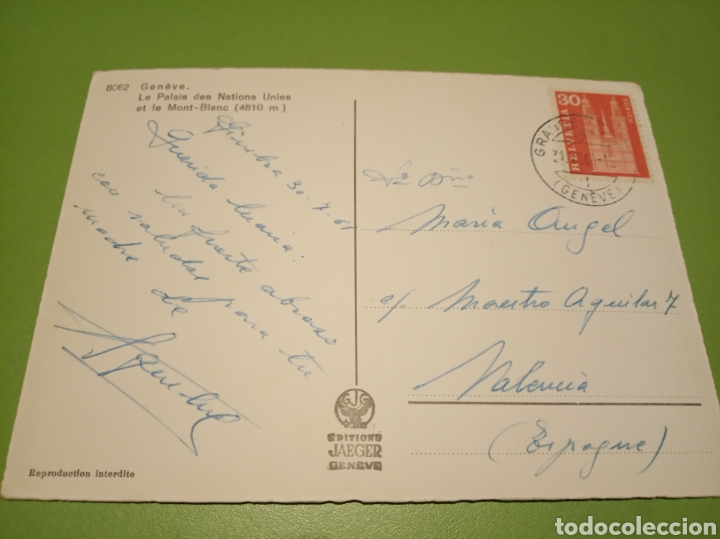 8062 Genève.
Le Palais des Nations Unies
et le Mont-Blanc (4810 m)
Ginebra 30-7-
Querida Maria:
Un fuerte abrazo
con saludos para tu
madre de
30
HELVETIA
GRAND
(GENÈVE)
María Angel
c/. Maestro Aguilar 7
Valencia
(Espagne)
GJG
EDITIONS
JAEGER
GENÈVE
Reproduction interdite
todocoleccion